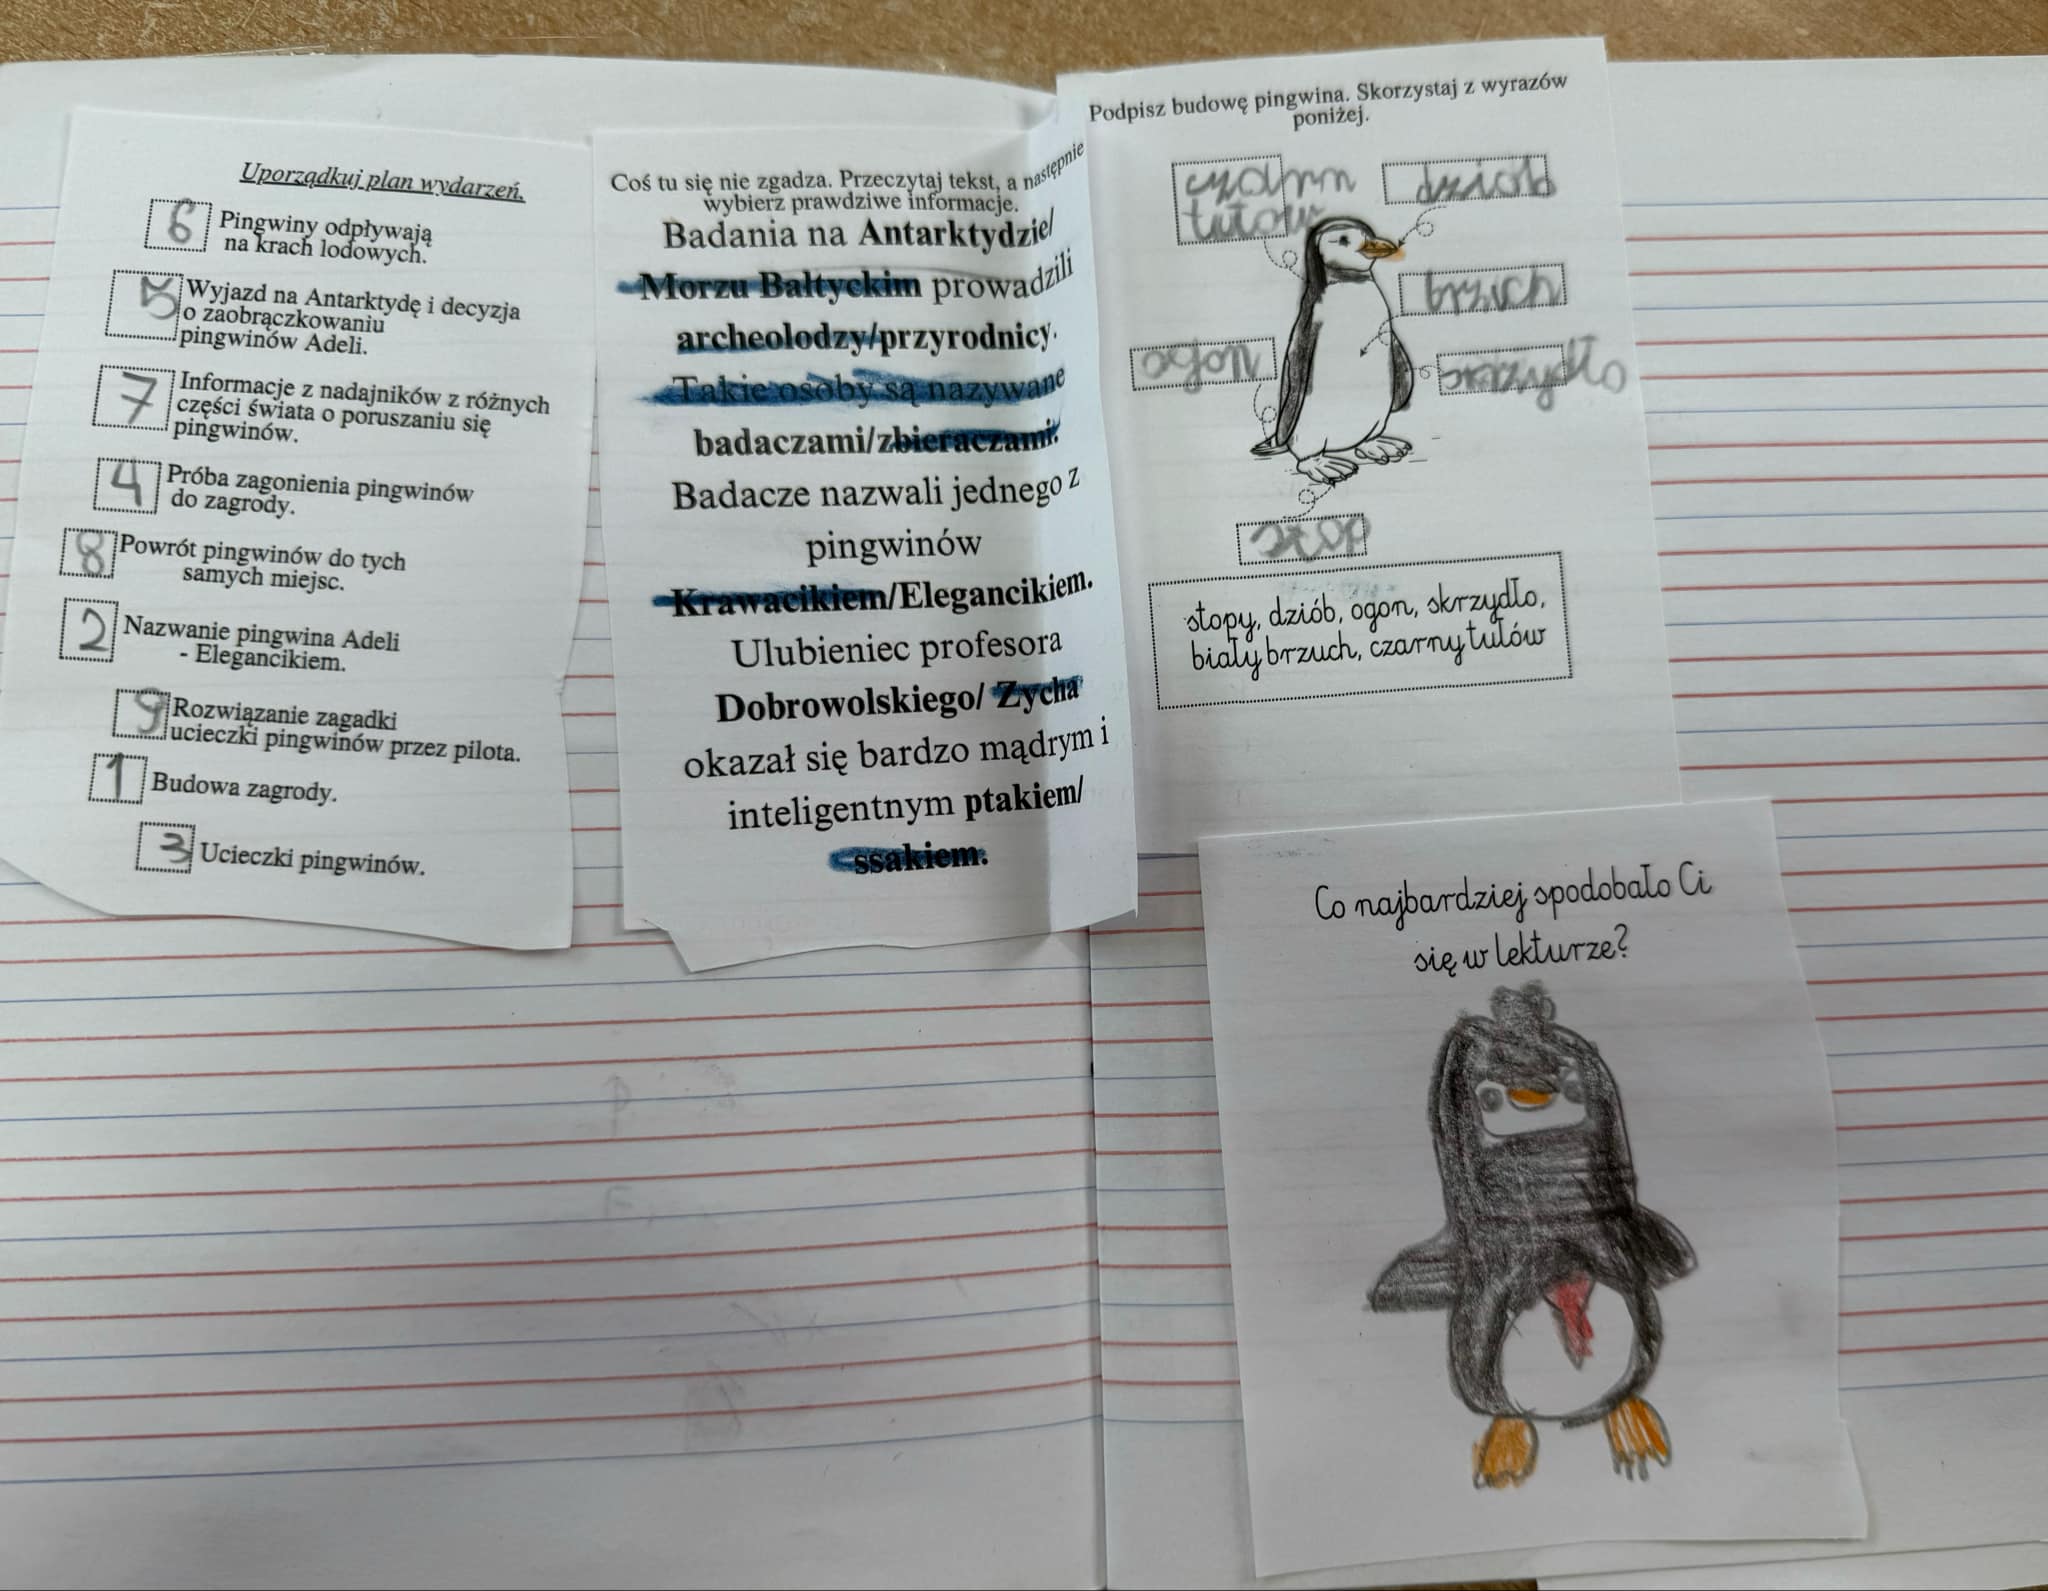 Uporządkuj plan wydarzeń.
6 Pingwiny odpływają
na krach lodowych.
5 Wyjazd na Antarktydę i decyzja
o zaobrączkowaniu
pingwinów Adeli.
7 Informacje z nadajników z różnych
części świata o poruszaniu się
pingwinów.
4 Próba zagonienia pingwinów
do zagrody.
8 Powrót pingwinów do tych
samych miejsc.
2 Nazwanie pingwina Adeli
- Elegancikiem.
9 Rozwiązanie zagadki
ucieczki pingwinów przez pilota.
1 Budowa zagrody.
3 Ucieczki pingwinów.
Coś tu się nie zgadza. Przeczytaj tekst, a następnie
wybierz prawdziwe informacje.
Badania na Antarktydzie/
Morzu Bałtyckim prowadzili
archeolodzy/przyrodnicy.
Takie osoby są nazywane
badaczami/zbieraczami.
Badacze nazwali jednego z
pingwinów
Krawacikiem/Elegancikiem.
Ulubieniec profesora
Dobrowolskiego/ Zycha
okazał się bardzo mądrym i
inteligentnym ptakiem/
ssakiem.
Podpisz budowę pingwina. Skorzystaj z wyrazów
poniżej.
dziób
brzuch
ogon
skrzydło
stop
stopy, dziób, ogon, skrzydło,
biały brzuch, czarny tułów
Co najbardziej spodobało Ci
się w lekturze?